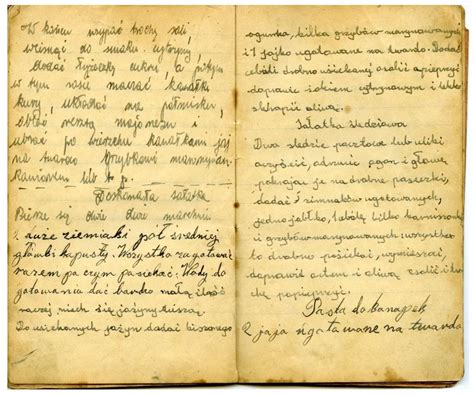 W końcu wsypać trochę soli,
wcisnąć do smaku cytryny,
dodać łyżeczkę cukru, a potem
w tym sosie maczać kawałki
kury, układać na półmisku,
oblać resztą majonezu i
ubrać po wierzchu kawałkami jaj
na twardo grzybkami marynowan.
kaniorami lub t. p.
Doskonała sałatka
Bierze się dwie duże marchwie
i duże ziemniaki pół średniej
główki kapusty. Wszystko zagotować
razem po czym posiekać. Wody do
gotowania dać bardzo małą ilość
raczej niech się jarzyny duszą.
Do usiekanych jarzyn dodać kiszonego
ogórka, kilka grzybków marynowanych
i 1 jajko ugotowane na twardo. Dodać
cebuli drobno usiekanej osolić opieprzyć
doprawić sokiem cytrynowym i lekko
skropić oliwą.
Sałatka śledziowa
Dwa śledzie pocztowe lub uliki
oczyścić, odrzucić ogon i głowę
pokrajać je na drobne paseczki,
dodać 5 ziemniaków ugotowanych,
jedno jabłko, łabędź kilka korniszonów
i grzybków marynowanych: wszystko
to drobno posiekać, wymieszać,
doprawić octem i oliwą osolić i tro-
chę popieprzyć.
Pasta do kanapek
2 jaja ugotowane na twardo